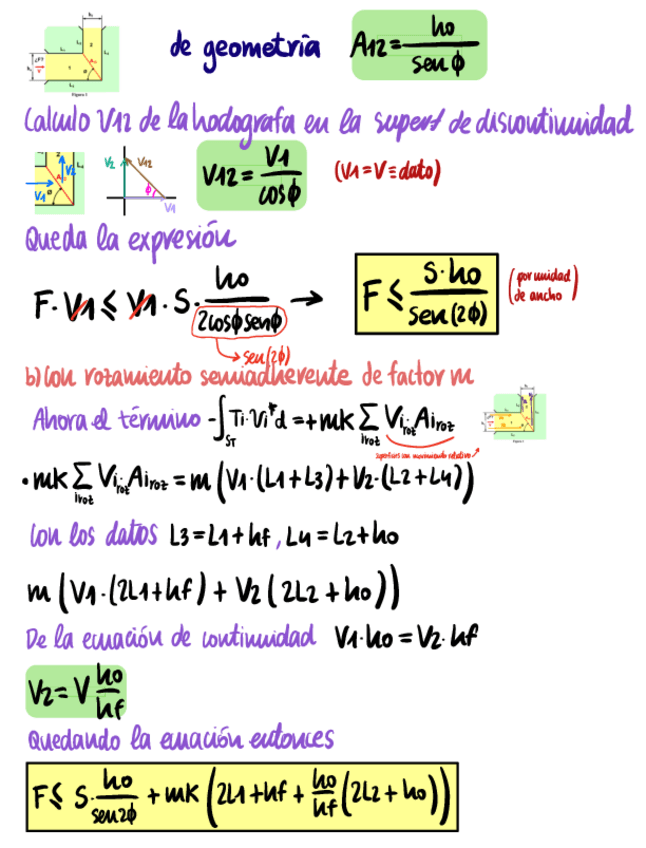 de geometría A12 = ho / sen ϕ
Calculo V12 de la hodografa en la superf de discontinuidad
V12 = V1 / cos ϕ (V1 = V ≡ dato)
V2 V12 ϕ V1
Queda la expresión
F · V1 ≤ V1 · S · ho / 2cosϕsenϕ → F ≤ S·ho / sen(2ϕ) (por unidad de ancho)
→ sen(2ϕ)
b) Con rozamiento semiadherente de factor m
Ahora el término -∫ST Ti·Vi*d = + mk Σiroz Viroz Airoz
superficies con movimiento relativo
• mk Σiroz Viroz Airoz = m (V1·(L1+L3)+V2·(L2+L4))
Con los datos L3 = L1+hf, L4 = L2+ho
m (V1·(2L1+hf) + V2(2L2+ho))
De la ecuación de continuidad V1·ho = V2·hf
V2 = V ho / hf
Quedando la ecuación entonces
F ≤ S · ho / sen2ϕ + mk (2L1+hf + ho / hf (2L2+ho))